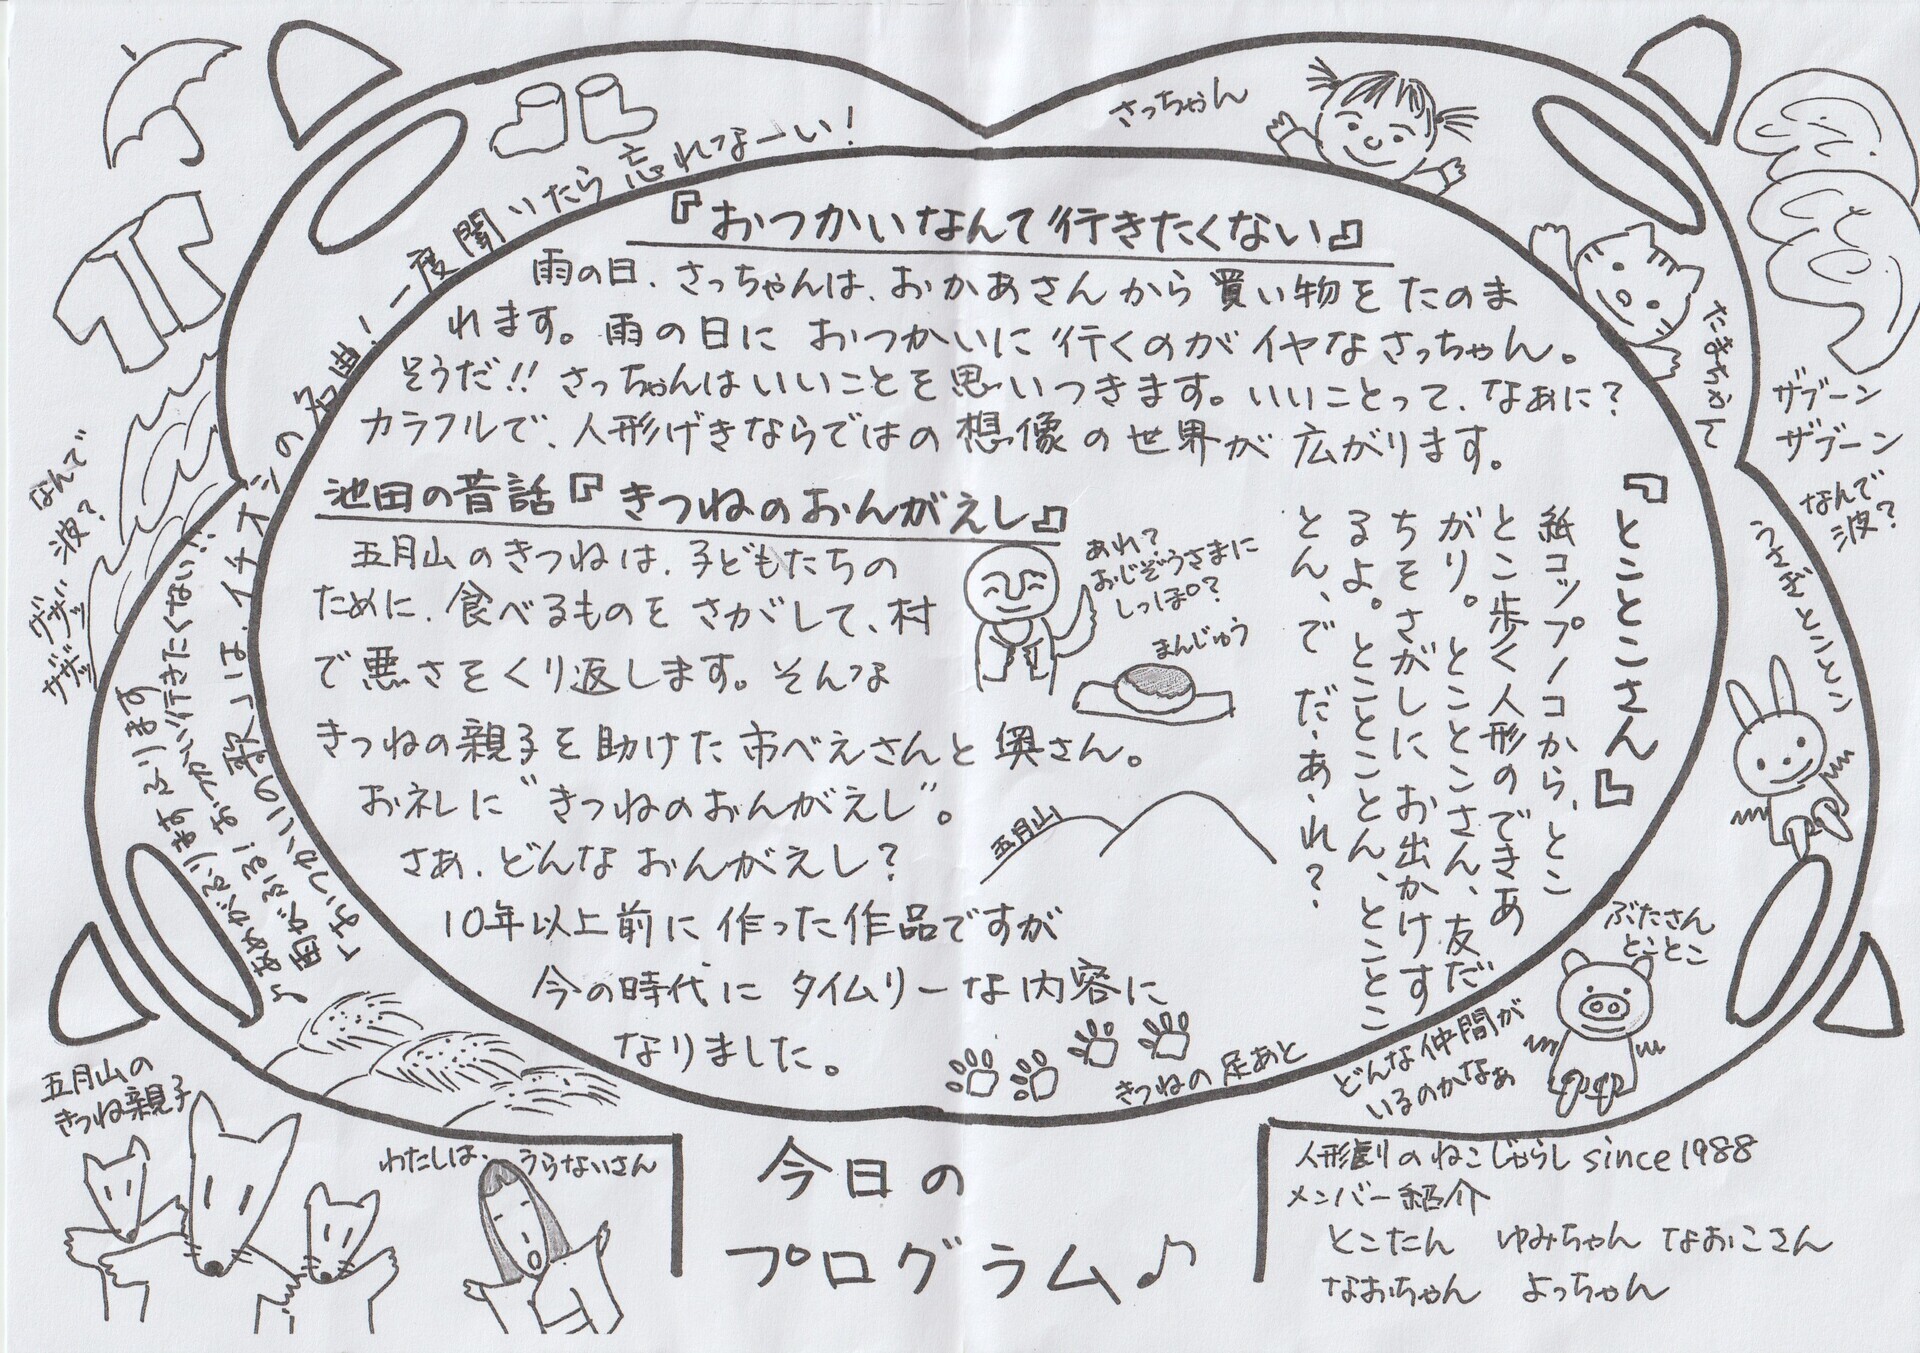 『おつかいなんて行きたくない』
雨の日、さっちゃんは、おかあさんから買い物をたのま
れます。雨の日におつかいに行くのがイヤなさっちゃん。
そうだ!!さっちゃんはいいことを思いつきます。いいことって、なぁに?
カラフルで、人形げきならではの想像の世界が広がります。
池田の昔話『きつねのおんがえし』
五月山のきつねは、子どもたちの
ために、食べるものをさがして、村
で悪さをくり返します。そんな
きつねの親子を助けた市べえさんと奥さん。
お礼に"きつねのおんがえし"。
さあ、どんなおんがえし?
10年以上前に作った作品ですが
今の時代にタイムリーな内容に
なりました。
あれ?
おじぞうさまに
しっぽ?
まんじゅう
五月山
きつねの足あと
『とことこさん』
紙コップノコから、とこ
とこ歩く人形のできあ
がり。とことこさん、友だ
ちをさがしにお出かけす
るよ。とことことん、とことこ
とん、で だ・あ・れ?
さっちゃん
たまちゃん
ザブーン
ザブーン
なんで
波?
うさぎとことこ
ぶたさん
とことこ
どんな仲間が
いるのかなぁ
「おつかいの歌」は、イチオシの名曲!一度聞いたら忘れなーい!
雨がふる!おつかい行きたくない!!
♪あめがふりますふります
なんで
波?
ザザッ
ザザッ
五月山の
きつね親子
わたしは、うらないさん
今日の
プログラム♪
人形劇のねこじゃらし since1988
メンバー紹介
とこたん ゆみちゃん なおこさん
なおちゃん よっちゃん